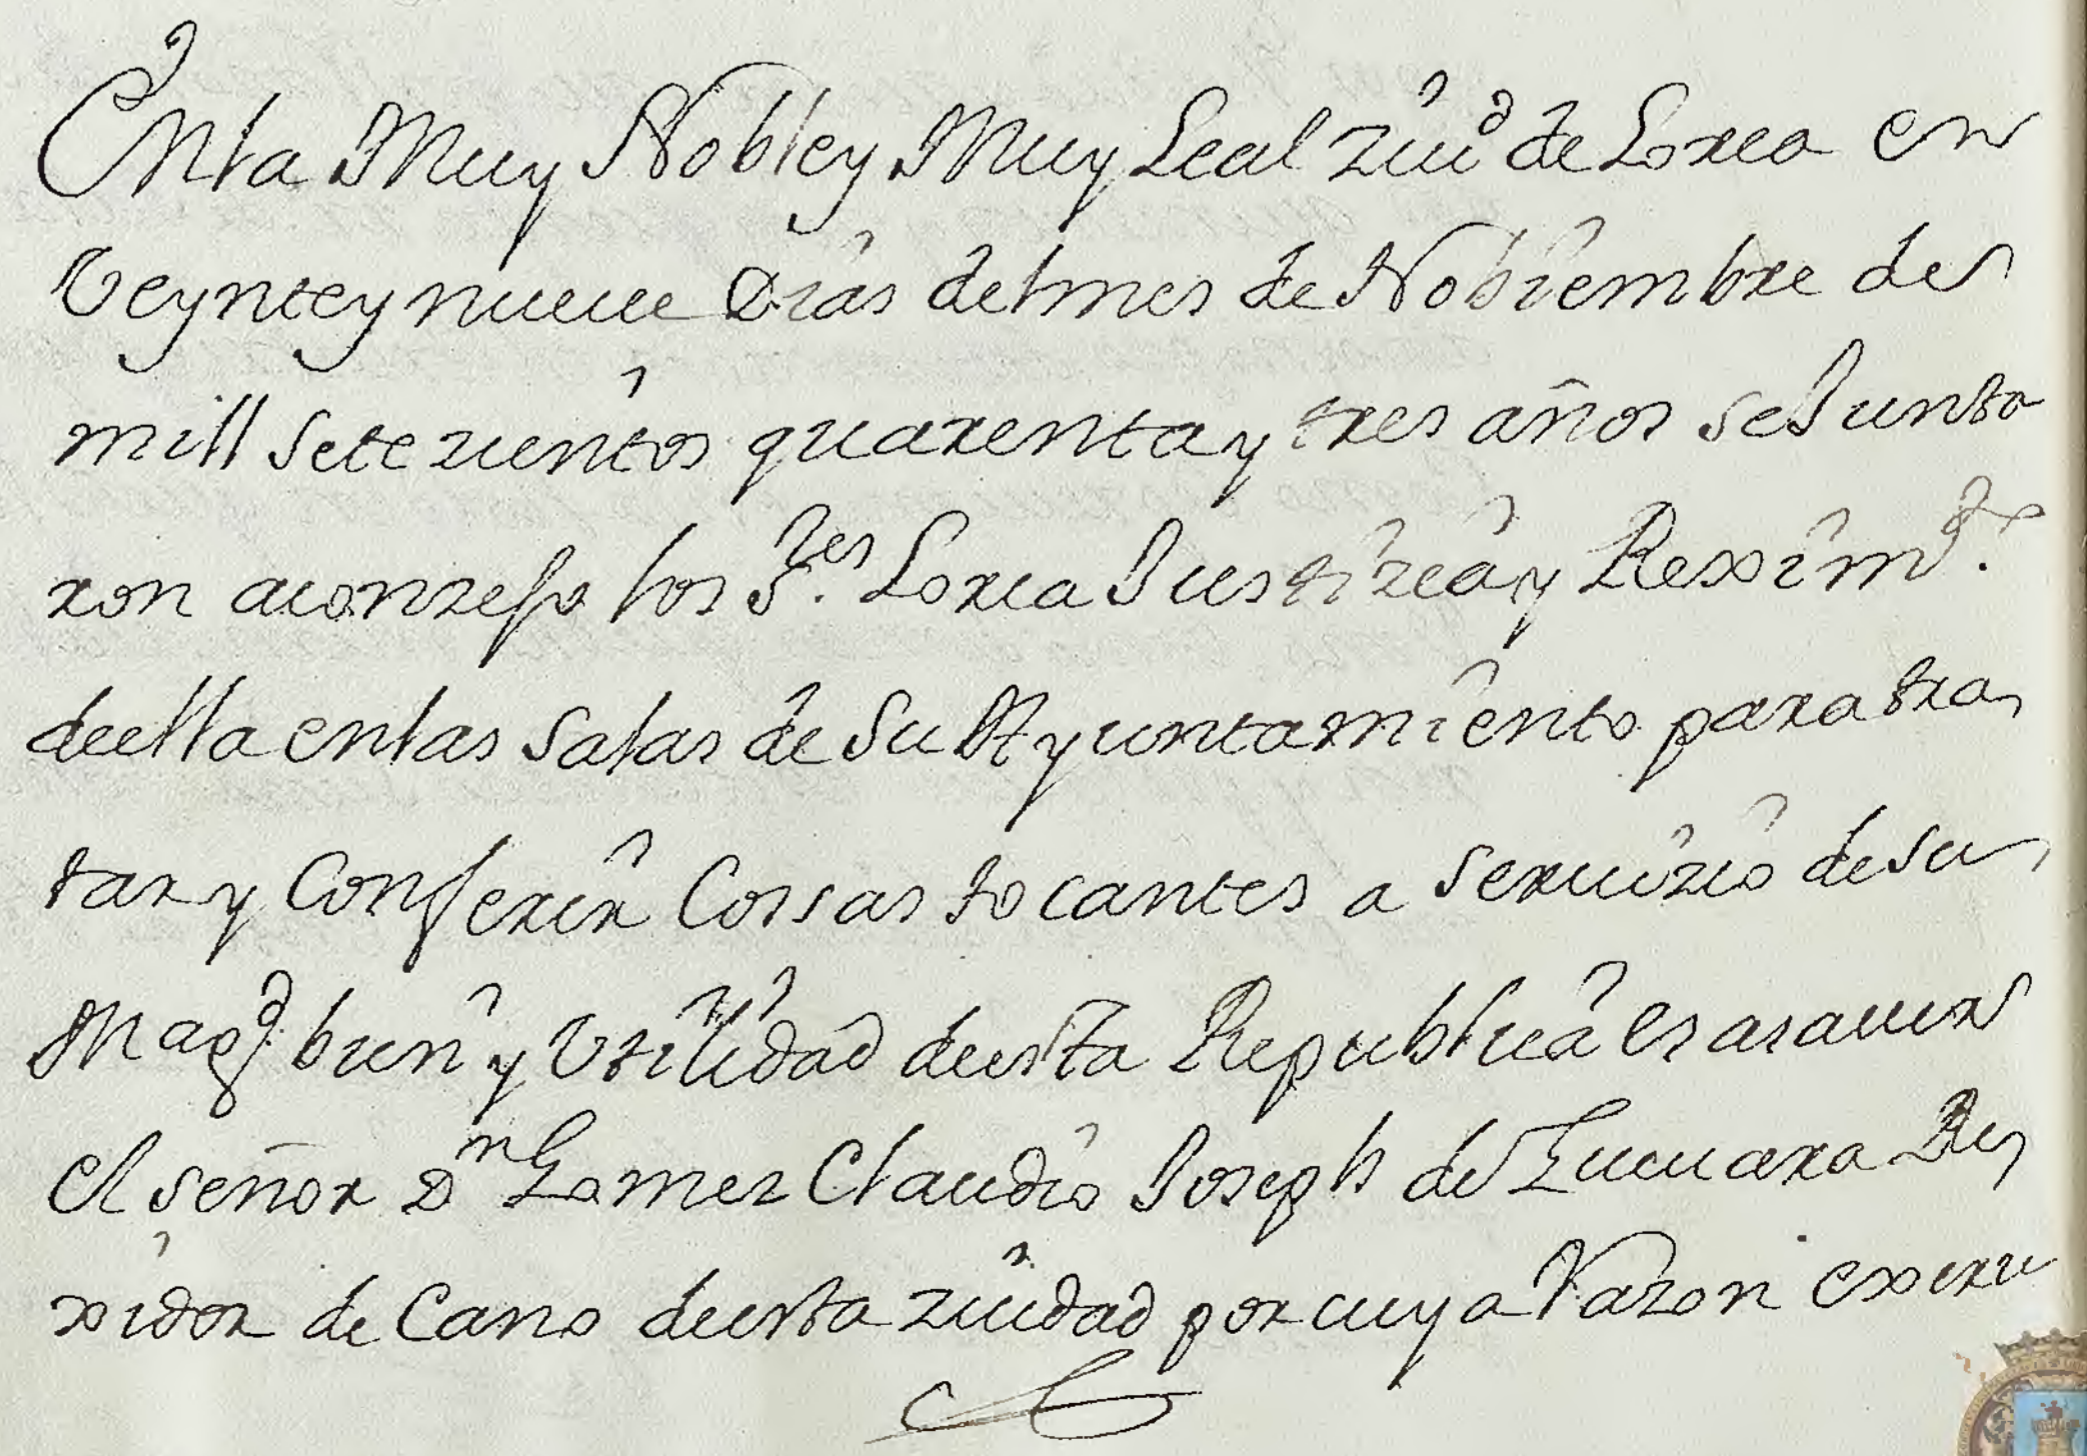 Enla Muy Nobley Muy Leal Ziud de Lorca en
Veynteynueve Dias delmes de Nobiembre de
mill setezientos quarentay tres años seJunta
ron aconzejo los Sres Lorca Justiziay Reximto
deella enlas Salas de Su Ayuntamiento paratra
tary Conferir Cossas tocantes a servizio de su
Magd bien y Utilidad deesta Republica es asaver
el señor Dn Gomez Claudio Joseph de Guevara Re
xidor de Cano deesta ziudad por cuya Razon exerze